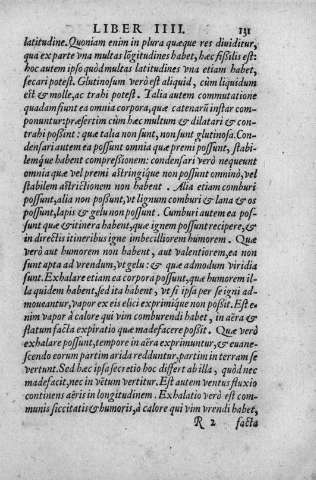 LIBER IIII. 131
latitudine. Quoniam enim in plura quæque res diuiditur,
qua ex parte vna multas lõgitudines habet, hæc fissilis est:
hoc autem ipso quòd multas latitudines vna etiam habet,
secari potest. Glutinosum verò est aliquid, cùm liquidum
est & molle, ac trahi potest. Talia autem commutatione
quadam sunt ea omnia corpora, quæ catenarũ instar com
ponuntur: præsertim cùm hæc multum & dilatari & con-
trahi possint: quæ talia non sunt, non sunt glutinosa. Con
densari autem ea possunt omnia quæ premi possunt, stabi-
lemq́ue habent compreßionem: condensari verò nequeunt
omnia quæ vel premi astringique non possunt omnino, vel
stabilem astrictionem non habent. Alia etiam comburi
possunt, alia non poßunt, vt lignum comburi & lana & os
possunt, lapis & gelu non possunt. Cumburi autem ea pos-
sunt quæ & itinera habent, quæ ignem possunt recipere, &
in directis itineribus igne imbecilliorem humorem. Quæ
verò aut humorem non habent, aut valentiorem, ea non
sunt apta ad vrendum, vt gelu: & quæ admodum viridia
sunt. Exhalare etiam ea corpora possunt, quæ humorem il-
la quidem habent, sed ita habent, vt si ipsa per se igni ad-
moueantur, vapor ex eis elici exprimique non poßit. Est e-
nim vapor à calore qui vim comburendi habet, in aëra &
flatum facta expiratio quæ madefacere poßit. Quæ verò
exhalare possunt, tempore in aëra exprimuntur, & euane-
scendo eorum partim arida redduntur, partim in terram se
vertunt. Sed hæc ipsa secretio hoc differt ab illa, quòd nec
madefacit, nec in vẽtum vertitur. Est autem ventus fluxio
continens aëris in longitudinem. Exhalatio verò est com-
munis siccitatis & humoris, à calore qui vim vrendi habet,
R 2 facta